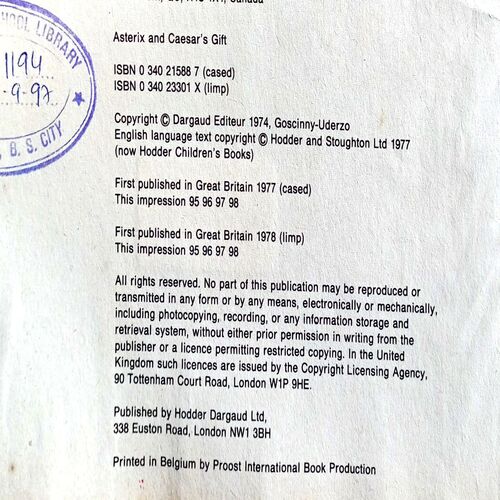 Canada
Asterix and Caesar's Gift
ISBN 0 340 21588 7 (cased)
ISBN 0 340 23301 X (limp)
Copyright © Dargaud Editeur 1974, Goscinny-Uderzo
English language text copyright © Hodder and Stoughton Ltd 1977
(now Hodder Children's Books)
First published in Great Britain 1977 (cased)
This impression 95 96 97 98
First published in Great Britain 1978 (limp)
This impression 95 96 97 98
All rights reserved. No part of this publication may be reproduced or
transmitted in any form or by any means, electronically or mechanically,
including photocopying, recording, or any information storage and
retrieval system, without either prior permission in writing from the
publisher or a licence permitting restricted copying. In the United
Kingdom such licences are issued by the Copyright Licensing Agency,
90 Tottenham Court Road, London W1P 9HE.
Published by Hodder Dargaud Ltd,
338 Euston Road, London NW1 3BH
Printed in Belgium by Proost International Book Production
LIBRARY
1194
-9-97
B. S. CITY